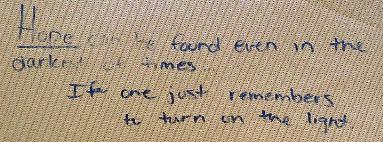 Hope can be found even in the
darkest of times
If one just remembers
to turn on the light.